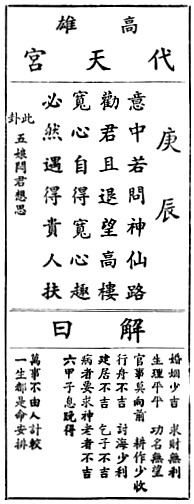 高雄
代天宮
庚辰
意中若問神仙路
勸君且退望高樓
寬心自得寬心趣
必然遇得貴人扶
此卦
五娘問君想思
解曰
婚姻少吉 求財無利
生理平平 功名無望
官事莫向前 耕作少收
行舟不吉 討海少利
建居不吉 乞子不吉
病者要求神老者不吉
六甲子息晚得
萬事不由人計較
一生都是命安排